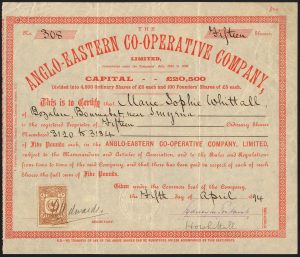 No. 308
Fifteen Shares.
THE
ANGLO-EASTERN CO-OPERATIVE COMPANY,
LIMITED,
CAPITAL £20,500
Divided into 4,000 Ordinary Shares of £5 each and 100 Founders' Shares of £5 each.
This is to Certify that Marie Sophie Whittall
of Bournabat near Smyrna
is the registered Proprietor of Fifteen Ordinary Shares
Numbered 3120 to 3134
of Five Pounds each, in the ANGLO-EASTERN CO-OPERATIVE COMPANY, LIMITED,
subject to the Memorandum and Articles of Association, and to the Rules and Regulations
from time to time of the said Company, and that there has been paid in respect of each of such
Shares the full sum of Five Pounds.
Given under the Common Seal of the Company,
the Fifth day of April 1894
SECRETARY.
N.B.—NO TRANSFER OF ANY OF THE ABOVE SHARES CAN BE REGISTERED UNLESS ACCOMPANIED BY THIS CERTIFICATE.